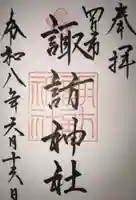 奉拝
四日市
諏訪神社
令和八年六月十六日